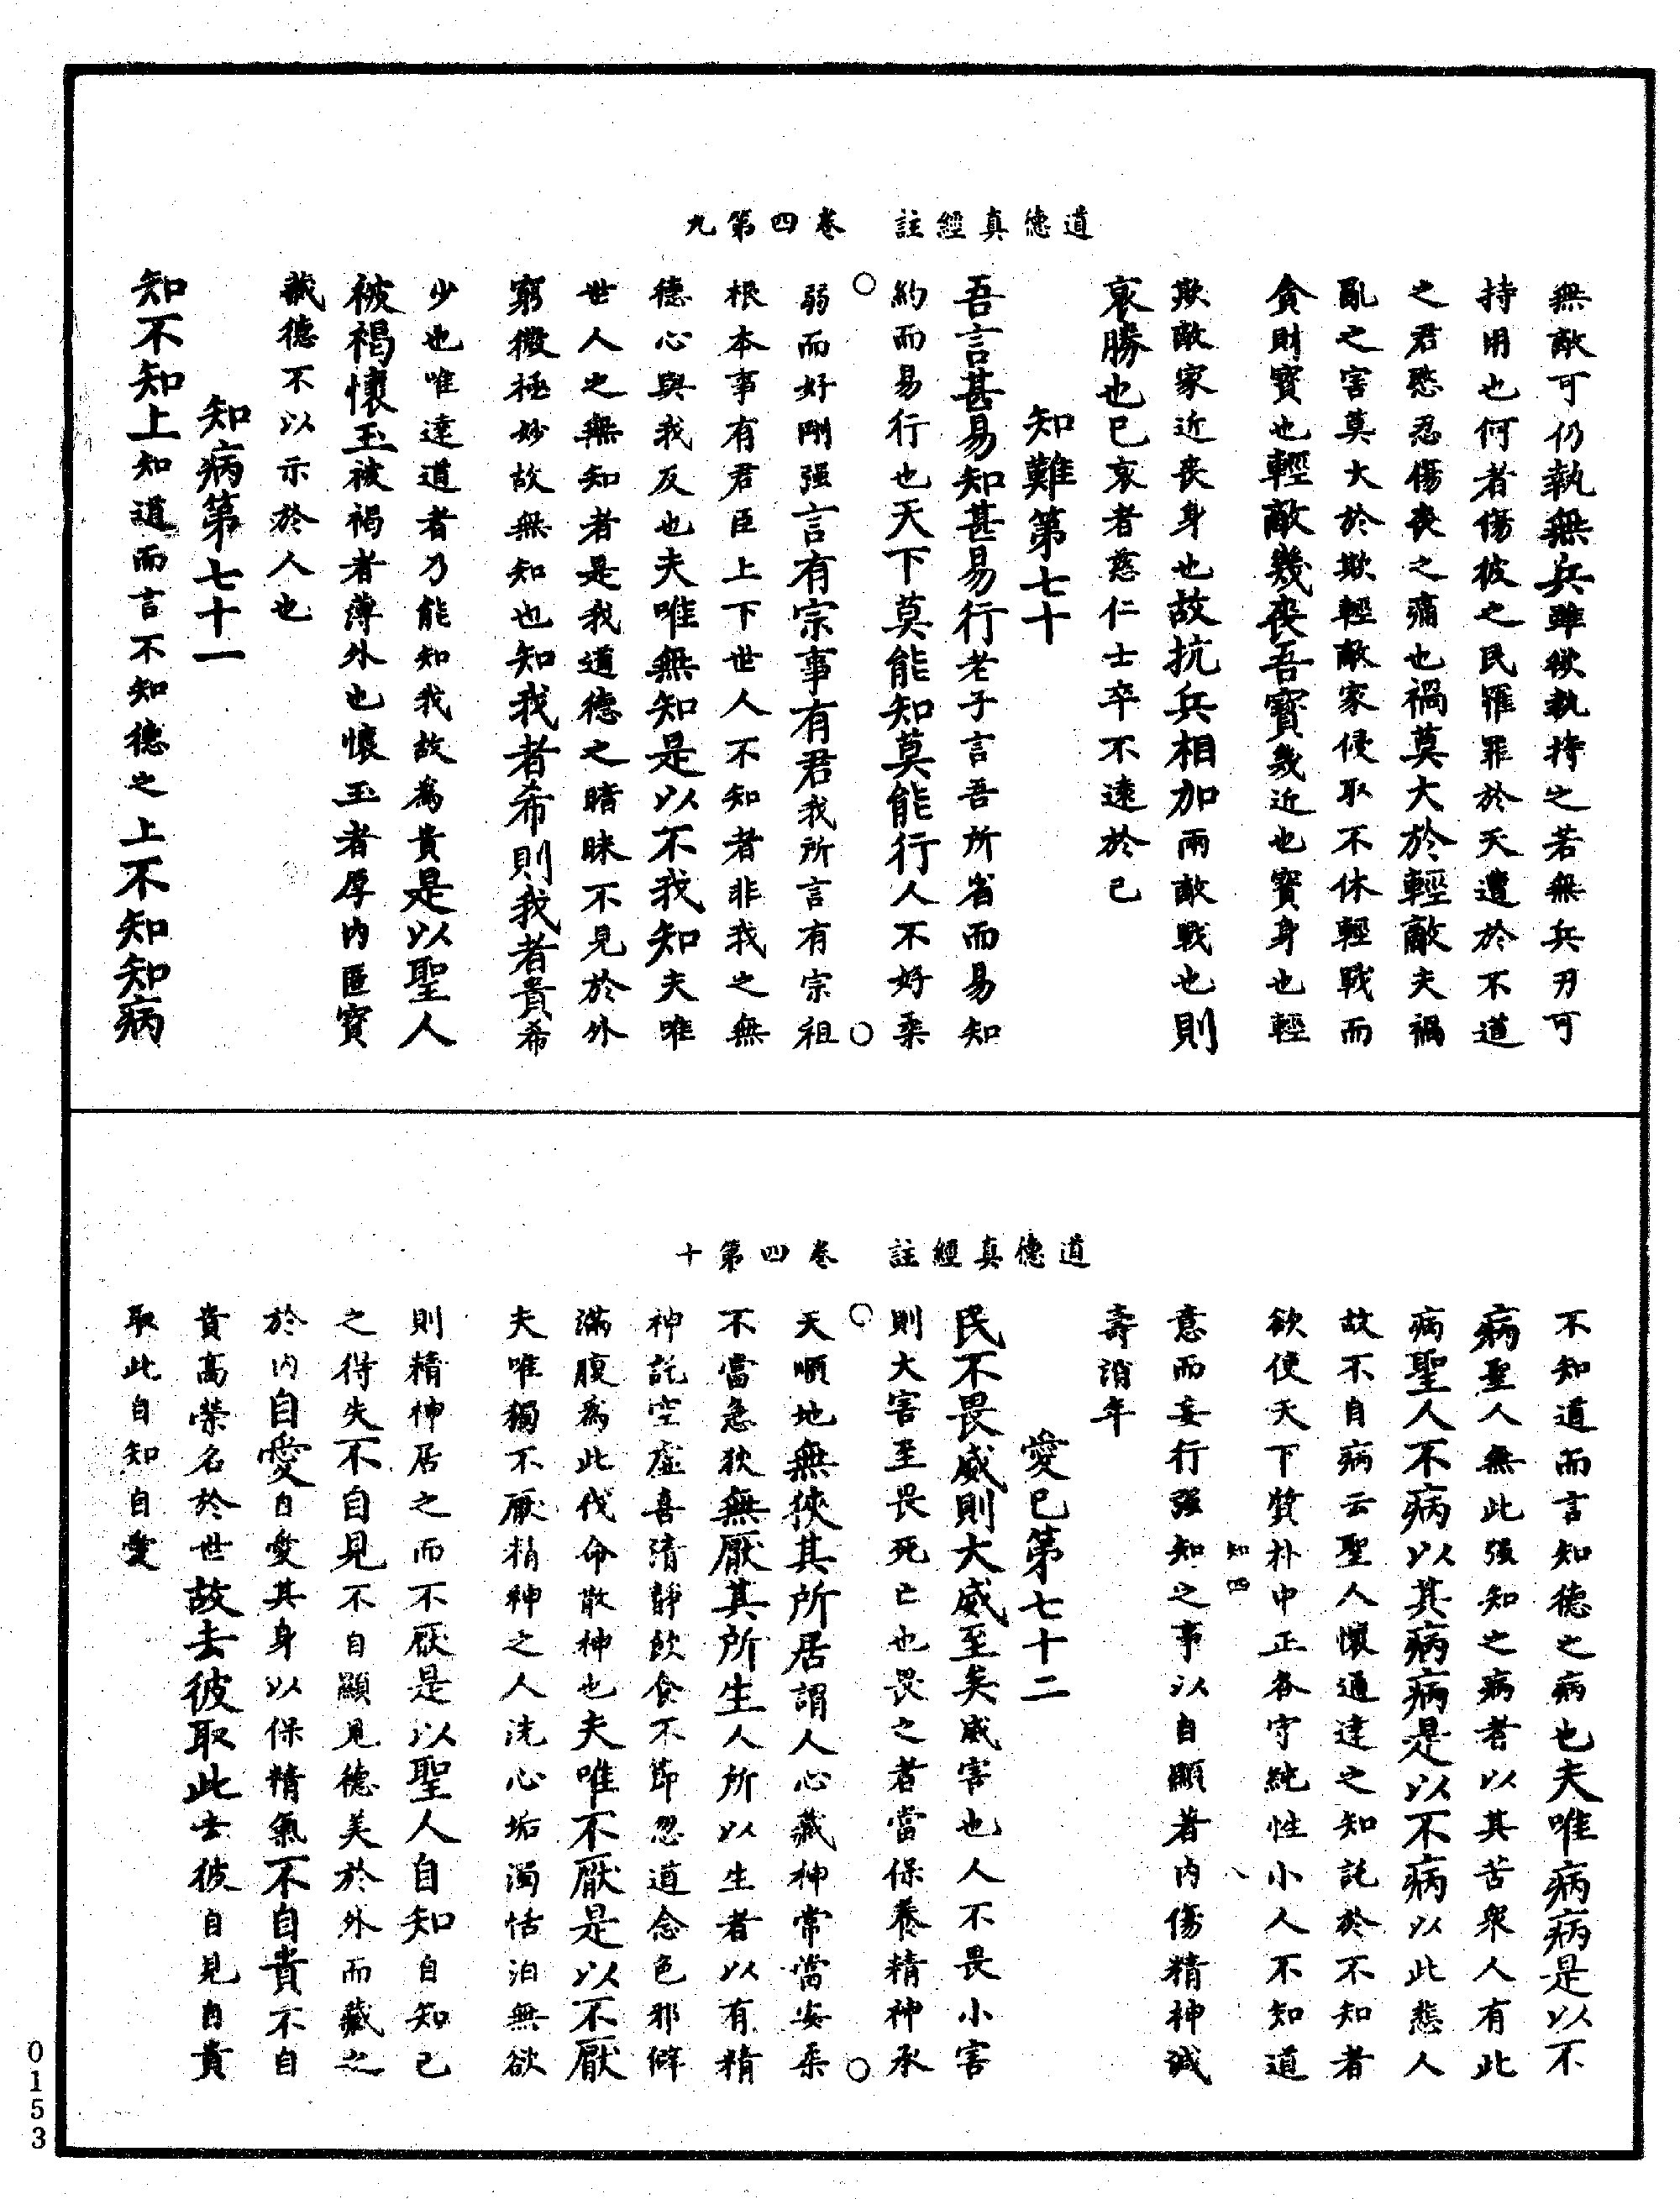 道德真經註 卷四第九
無敵可仍執無兵雖欲執持之若無兵刃可
持用也何者傷彼之民罹罪於天遭於不道
之君愍忍傷喪之痛也禍莫大於輕敵夫禍
亂之害莫大於欺輕敵家侵取不休輕戰而
貪財寶也輕敵幾喪吾寶幾近也寶身也輕
欺敵家近喪身也故抗兵相加兩敵戰也則
哀勝也已哀者慈仁士卒不遠於已
知難第七十
吾言甚易知甚易行老子言吾所省而易知
約而易行也天下莫能知莫能行人不好柔
弱而好剛强言有宗事有君我所言有宗祖
根本事有君臣上下世人不知者非我之無
德心與我反也夫唯無知是以不我知夫唯
世人之無知者是我道德之暗昧不見於外
窮微極妙故無知也知我者希則我者貴希
少也唯達道者乃能知我故為貴是以聖人
被褐懷玉被褐者薄外也懷玉者厚内匿寶
藏德不以示於人也
知病第七十一
知不知上知道而言不知德之上不知知病
道德真經註 卷四第十
不知道而言知德之病也夫唯病病是以不
病聖人無此强知之病者以其苦衆人有此
病聖人不病以其病病是以不病以此悲人
故不自病云聖人懷通達之知託於不知者
欲使天下質朴中正各守純性小人不知道
知四 八
意而妄行强知之事以自顯著内傷精神減
壽消年
愛已第七十二
民不畏威則大威至矣威害也人不畏小害
則大害至畏死亡也畏之者當保養精神承
天順地無狹其所居謂人心藏神常當安柔
不當急狄無厭其所生人所以生者以有精
神託空虛喜清靜飲食不節忽道念色邪僻
滿腹為此伐命散神也夫唯不厭是以不厭
夫唯獨不厭精神之人洗心垢濁恬泊無欲
則精神居之而不厭是以聖人自知自知己
之得失不自見不自顯見德美於外而藏之
於内自愛自愛其身以保精氣不自貴不自
貴高榮名於世故去彼取此去彼自見自貴
取此自知自愛
0153